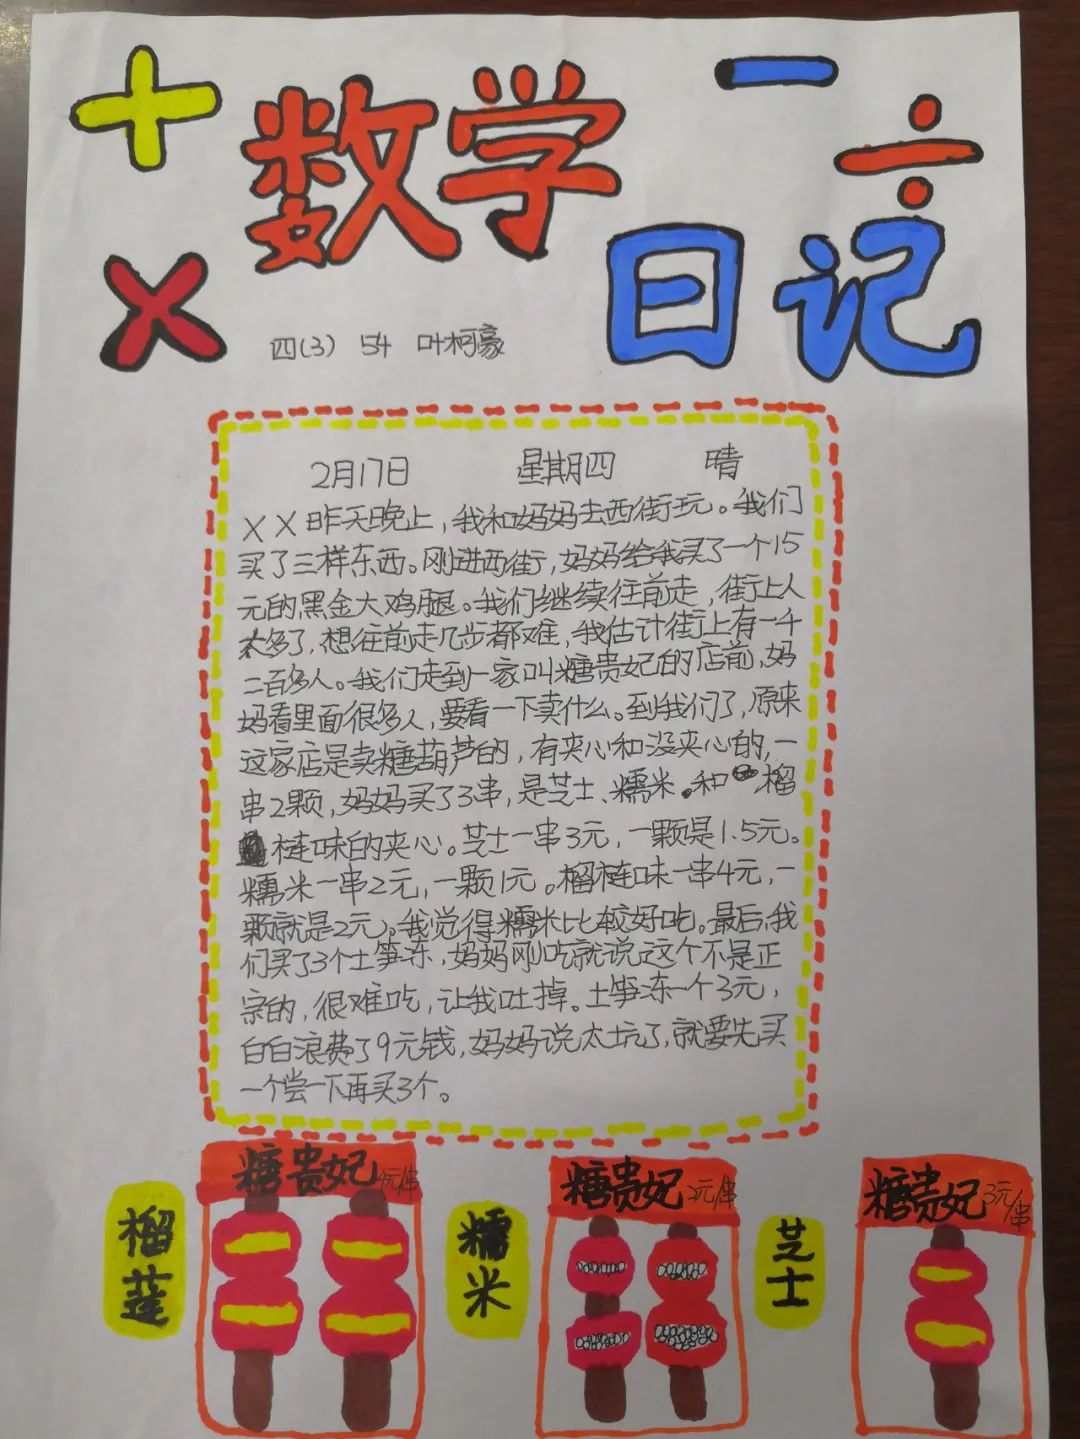 + 数学 − ÷
× 日记
四(3) 54 叶柯豪
2月17日 星期四 晴
××昨天晚上,我和妈妈去西街玩。我们
买了三样东西。刚进西街,妈妈给我买了一个15
元的黑金大鸡腿。我们继续往前走,街上人
太多了,想往前走几步都难,我估计街上有一千
二百多人。我们走到一家叫糖贵妃的店前,妈
妈看里面很多人,要看一下卖什么。到我们了,原来
这家店是卖糖葫芦的,有夹心和没夹心的,一
串2颗,妈妈买了3串,是芝士、糯米。和榴
梿味的夹心。芝士一串3元,一颗是1.5元。
糯米一串2元,一颗1元。榴梿味一串4元,一
颗就是2元。我觉得糯米比较好吃。最后,我
们买了3个土笋冻,妈妈刚吃就说这个不是正
宗的,很难吃,让我吐掉。土笋冻一个3元,
白白浪费了9元钱,妈妈说太坑了,就要先买
一个尝一下再买3个。
榴莲
糖贵妃 4元/串
糯米
糖贵妃 2元/串
芝士
糖贵妃 3元/串